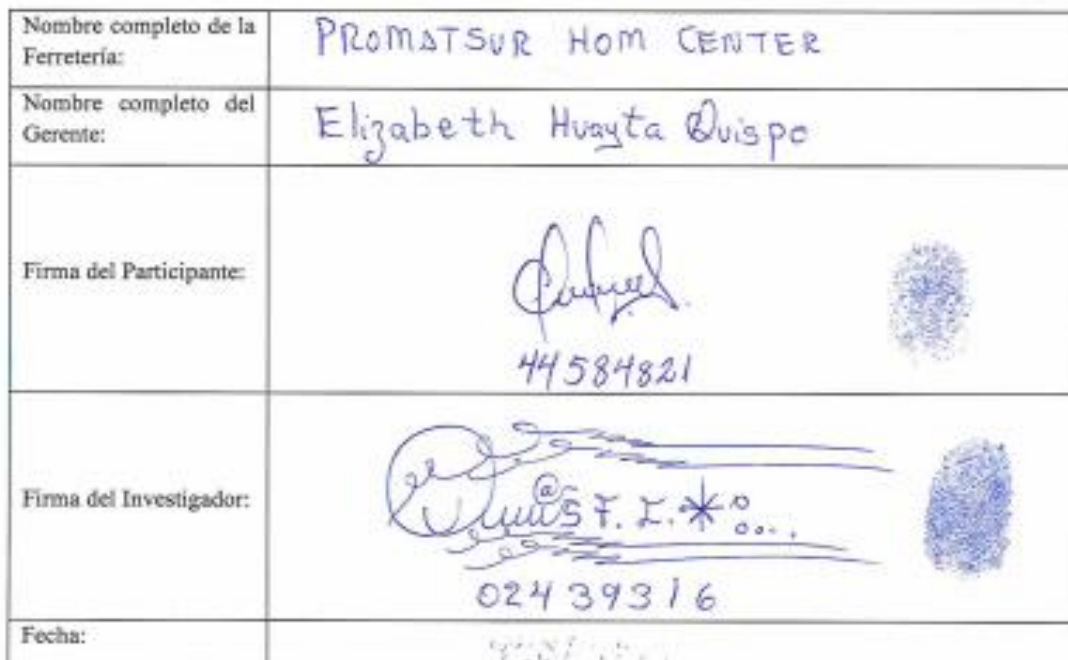 Nombre completo de la
Ferretería:
PROMATSUR HOM CENTER
Nombre completo del
Gerente:
Elizabeth Huayta Quispe
Firma del Participante:
44584821
Firma del Investigador:
F. I.
02439316
Fecha: